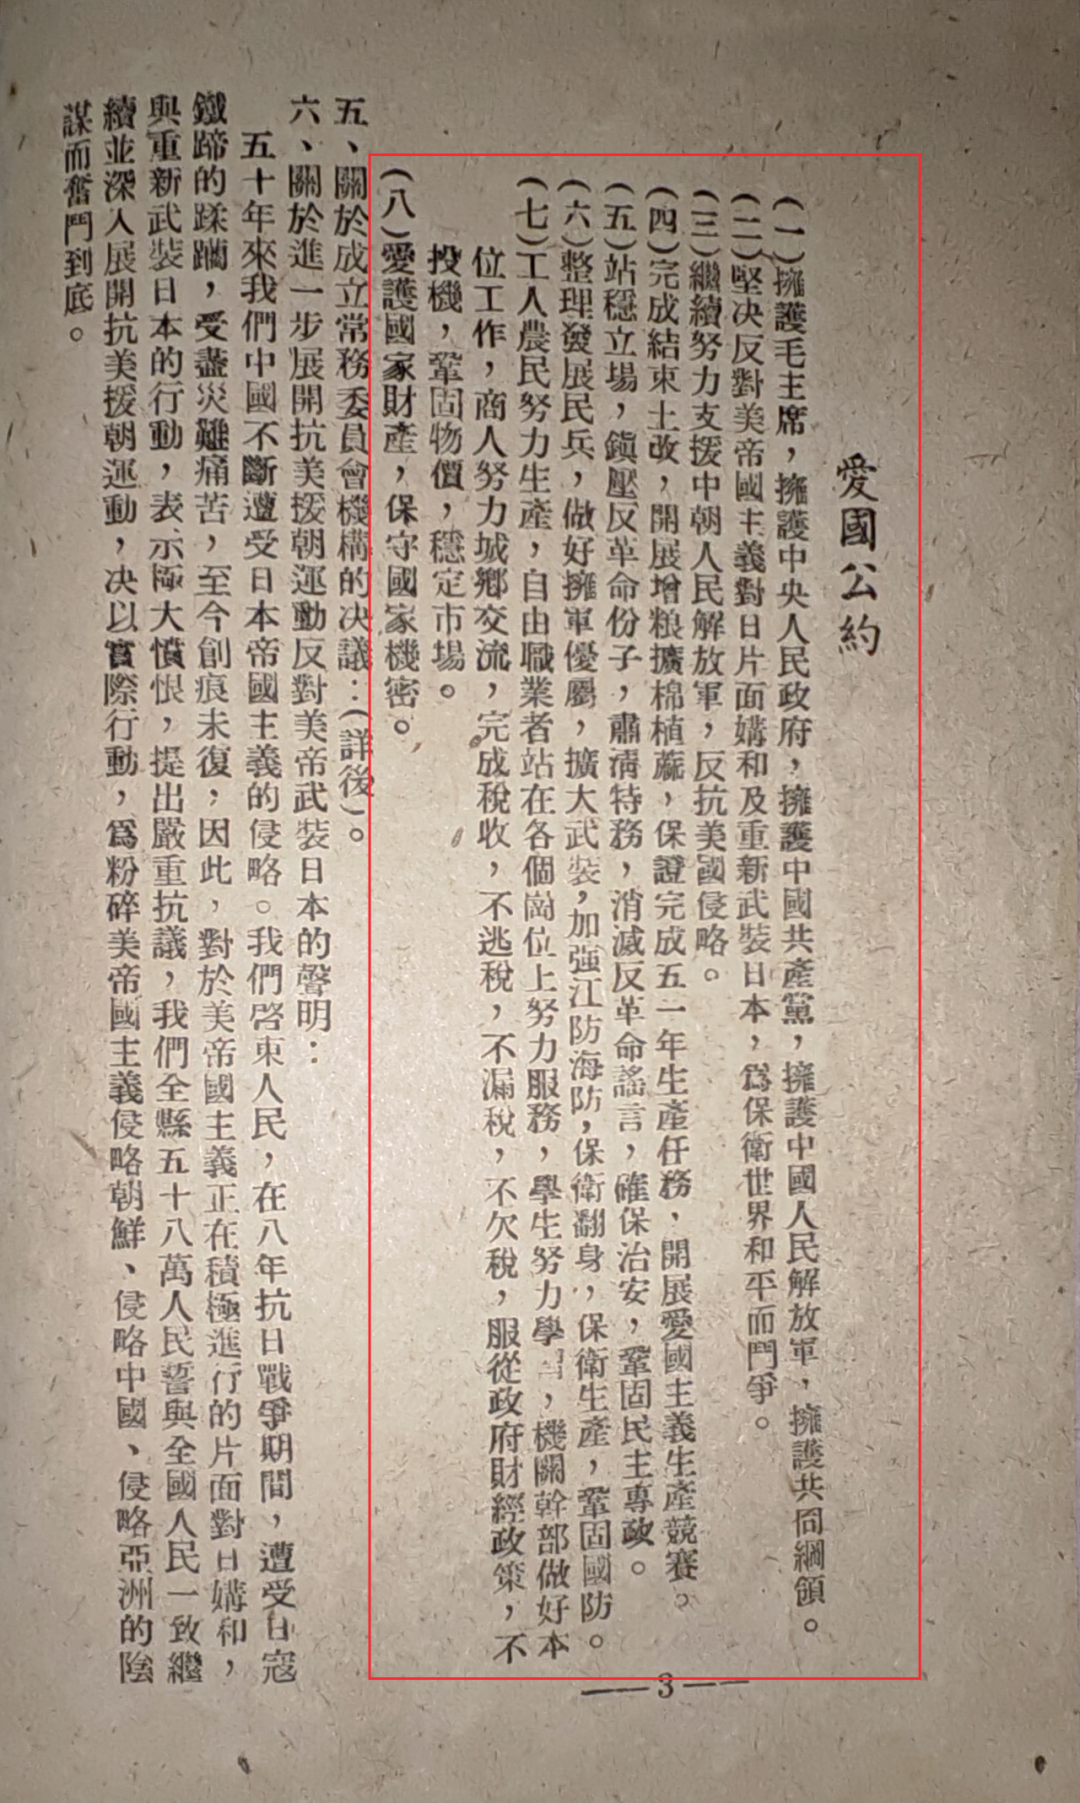 愛國公約
(一)擁護毛主席，擁護中央人民政府，擁護中國共產黨，擁護中國人民解放軍，擁護共同綱領。
(二)堅决反對美帝國主義對日片面媾和及重新武裝日本，爲保衛世界和平而鬥爭。
(三)繼續努力支援中朝人民解放軍，反抗美國侵略。
(四)完成結束土改，開展增粮擴棉植蔴，保證完成五一年生產任務，開展愛國主義生產競賽。
(五)站穩立場，鎮壓反革命份子，肅清特務，消滅反革命謠言，確保治安，鞏固民主專政。
(六)整理發展民兵，做好擁軍優屬，擴大武裝，加強江防海防，保衛翻身，保衛生產，鞏固國防。
(七)工人農民努力生產，自由職業者站在各個崗位上努力服務，學生努力學習，機關幹部做好本
位工作，商人努力城鄉交流，完成稅收，不逃稅，不漏稅，不欠稅，服從政府財經政策，不
投機，鞏固物價，穩定市場。
(八)愛護國家財產，保守國家機密。
五、關於成立常務委員會機構的决議：(詳後)。
六、關於進一步展開抗美援朝運動反對美帝武裝日本的聲明：
五十年來我們中國不斷遭受日本帝國主義的侵略。我們啓東人民，在八年抗日戰爭期間，遭受日寇
鐵蹄的蹂躪，受盡災難痛苦，至今創痕未復，因此，對於美帝國主義正在積極進行的片面對日媾和，
與重新武裝日本的行動，表示極大憤恨，提出嚴重抗議，我們全縣五十八萬人民誓與全國人民一致繼
續並深入展開抗美援朝運動，决以實際行動，爲粉碎美帝國主義侵略朝鮮、侵略中國、侵略亞洲的陰
謀而奮鬥到底。
——3——